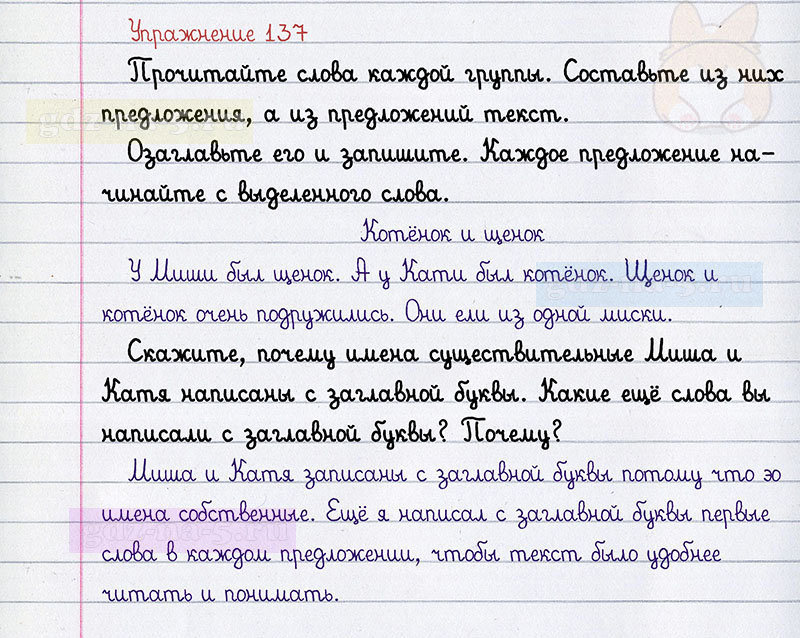 Упражнение 137
Прочитайте слова каждой группы. Составьте из них
предложения, а из предложений текст.
Озаглавьте его и запишите. Каждое предложение на-
чинайте с выделенного слова.
Котёнок и щенок
У Миши был щенок. А у Кати был котёнок. Щенок и
котёнок очень подружились. Они ели из одной миски.
Скажите, почему имена существительные Миша и
Катя написаны с заглавной буквы. Какие ещё слова вы
написали с заглавной буквы? Почему?
Миша и Катя записаны с заглавной буквы потому что эо
имена собственные. Ещё я написал с заглавной буквы первые
слова в каждом предложении, чтобы текст было удобнее
читать и понимать.